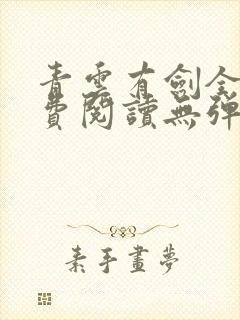 青雲有劍全
費閱讀無彈
素手畫夢